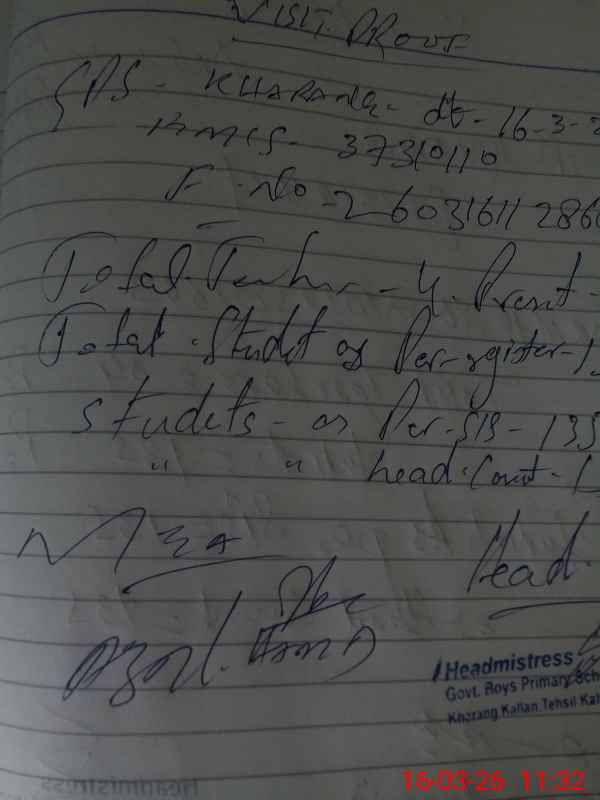 VISIT PROOF
GPS - KHARANG - dt - 16-3-2
EMIS - 37310110
F. No - 26031611286
Total Teacher - 4. Present -
Total Student as Per register - 1
Students - as Per SIS - 135
" " head Count - 1
MEA
Head
Headmistress
Govt. Boys Primary Sch
Kharang Kallan Tehsil Kal
Headmistress
16-03-26 11:32